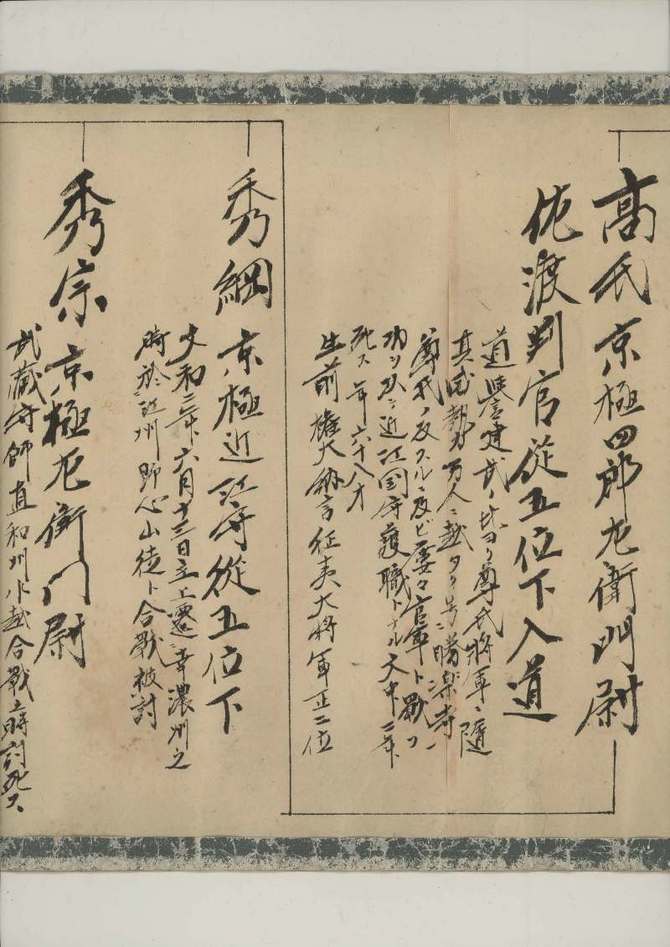 高氏京極四郎左衛門尉
佐渡判官従五位下入道
道誉建武ノ比ヨリ尊氏将軍ニ随
其忠勲万人ニ越タリ号勝楽寺
尊氏ノ反スルニ及ビ屡々官軍ト戦フ
功ヲ以テ近江国守護職トナル文中二年
死ス年六十八才
生前権大納言征夷大将軍正二位
秀綱京極近江守従五位下
文和二年六月十三日立上還幸濃州之
時於江州堅心山徒ト合戦被討
秀宗京極左衛門尉
武蔵守師直和州水越合戦之時討死ス